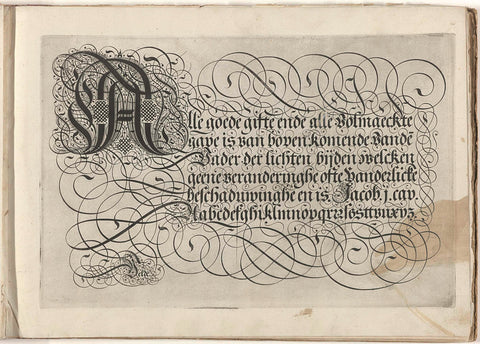 Alle goede gifte ende alle Volmaeckte
gave is van boven komende vandē
Vader der lichten bijden welcken
gene veranderinghe ofte Vanderlicke
beschaduwinghe en is. Jacob. j. cap.
Aabcdefghiklmnopqrzsſsttvuwxyz.